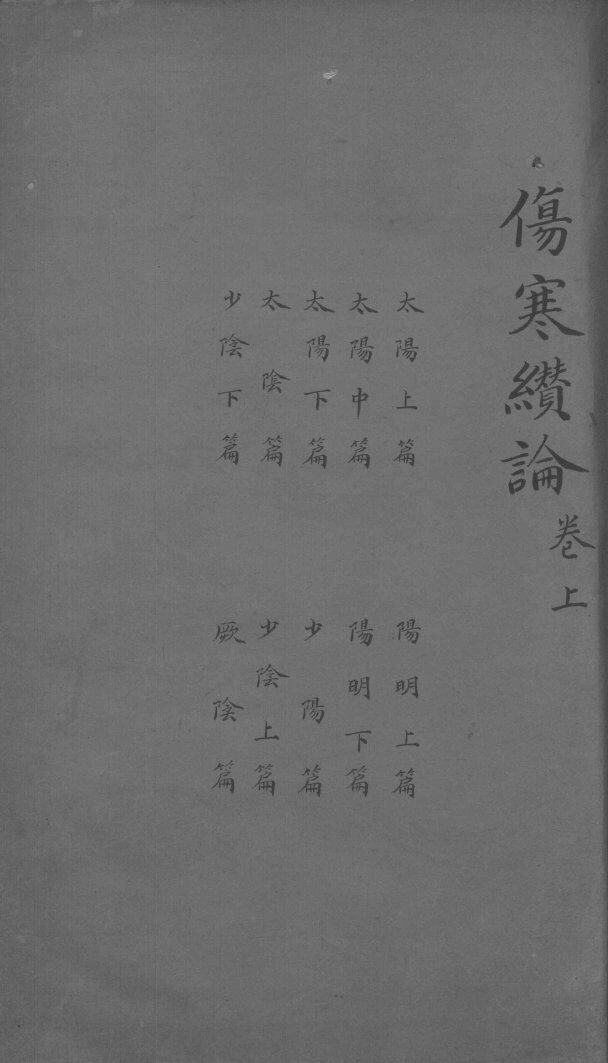 傷寒纘論卷上
太陽上篇
陽明上篇
太陽中篇
陽明下篇
太陽下篇
少陽篇
太陰篇
少陰上篇
少陰下篇
厥陰篇